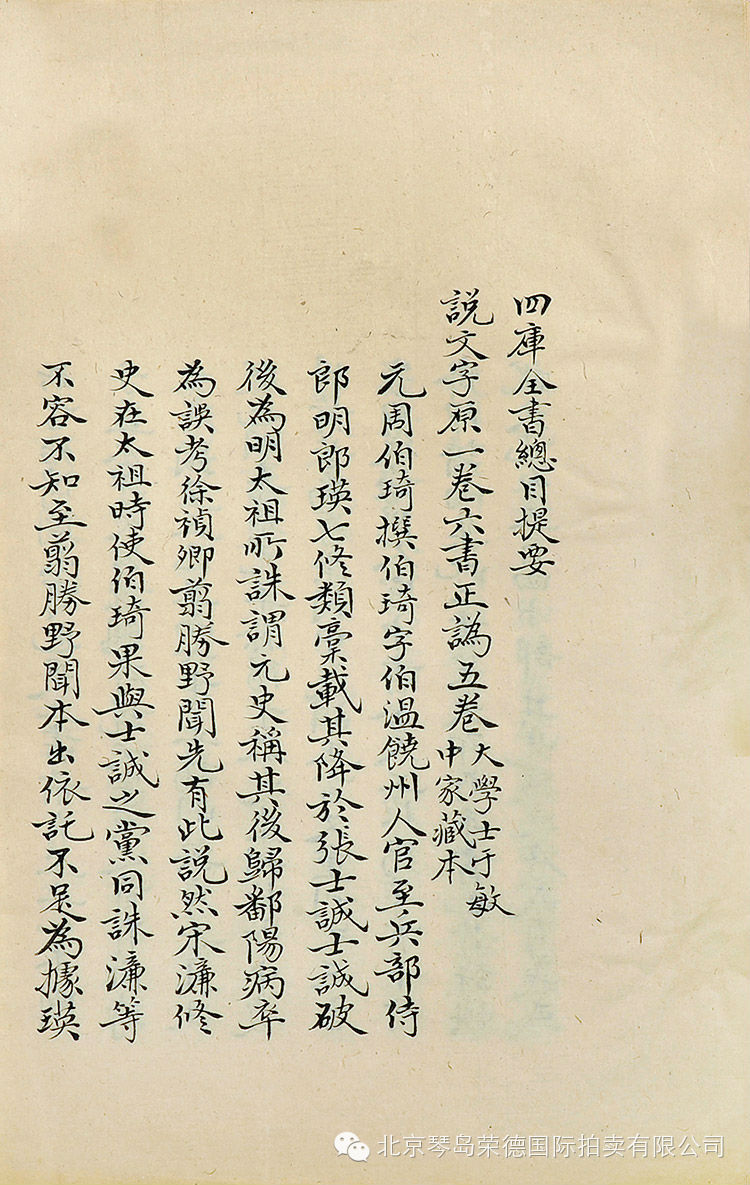 四庫全書總目提要
說文字原一卷六書正譌五卷大學士于敏
中家藏本
元周伯琦撰伯琦字伯溫饒州人官至兵部侍
郎明郎瑛七修類稾載其降於張士誠士誠破
後為明太祖所誅謂元史稱其後歸鄱陽病卒
為誤考徐禎卿翦勝野聞先有此說然宋濂修
史在太祖時使伯琦果與士誠之黨同誅濂等
不容不知至翦勝野聞本出依託不足為據瑛
北京琴岛荣德国际拍卖有限公司